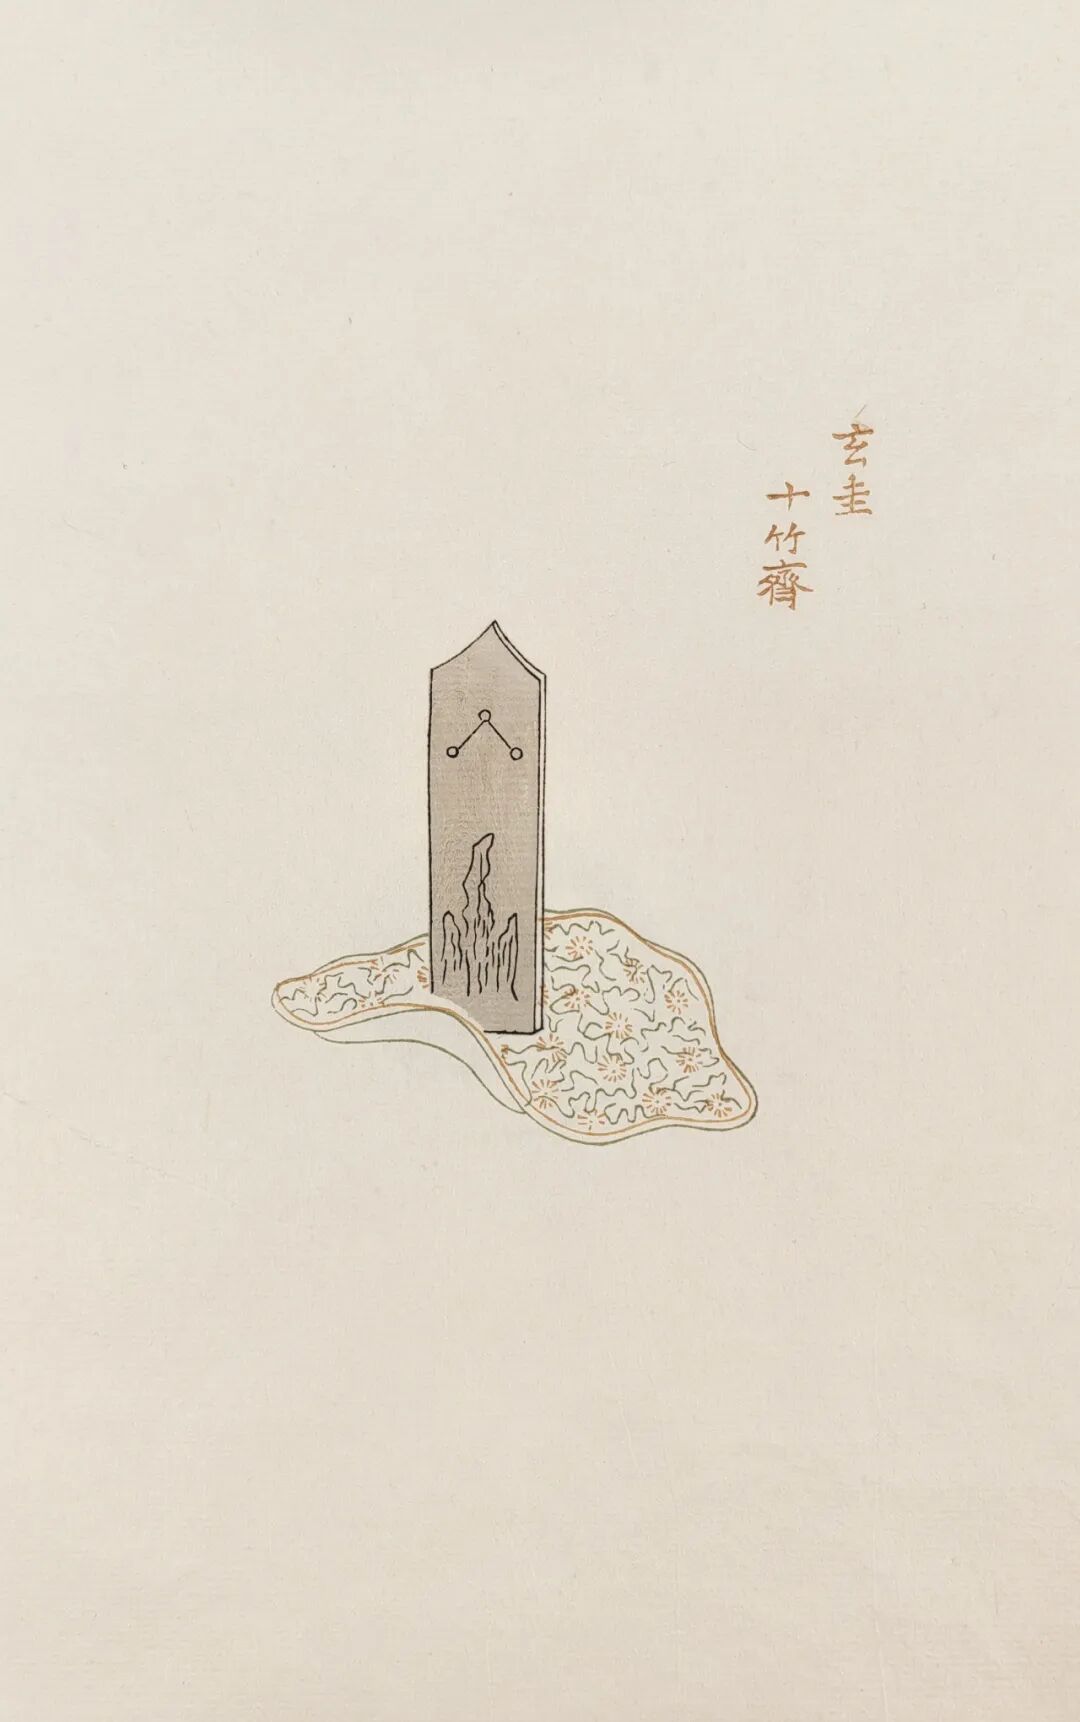 玄圭
十竹齋